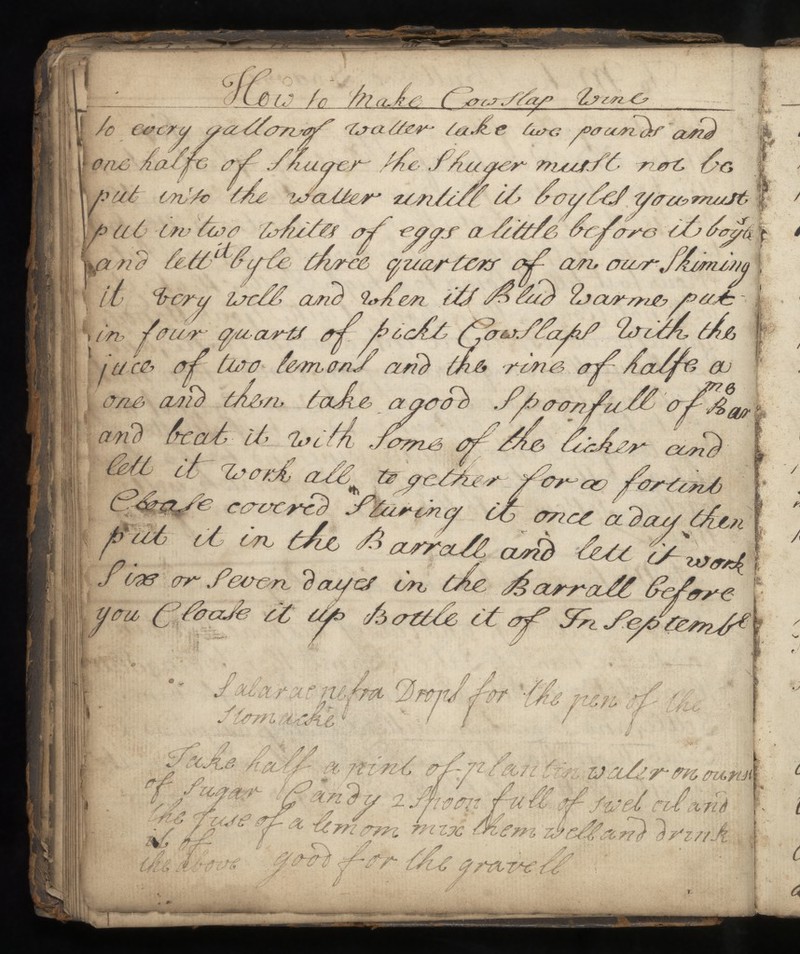 How to Make Cowslap Wine
to every gallon of watter take two pounds and
one halfe of Shuger the Shuger musst not be
put into the watter untill it boyles you must
put in two whites of eggs a little before it boyls
and lett it byle three quarters of an our Skiming
it very well and when its Blud Warme put
in four quarts of pickt Cowslaps With the
juce of two lemons and the rine of halfe a
one and then take a good Spoonfull of Barme
and beat it with Some of the licker and
lett it work all to gether for a fortint
Cloase covered Sturing it once a day then
put it in the Barrall and lett it work
Six or Seven dayes in the Barrall before
you Cloase it up Bottle it of In Septembr
Drops for the pen of the
Stomacke
Take half a pint of plantin water on ouns
of Sugar Candy 2 Spoon full of swet oil and
the juse of a lemom mix them well and drink
it of
the above good for the gravell